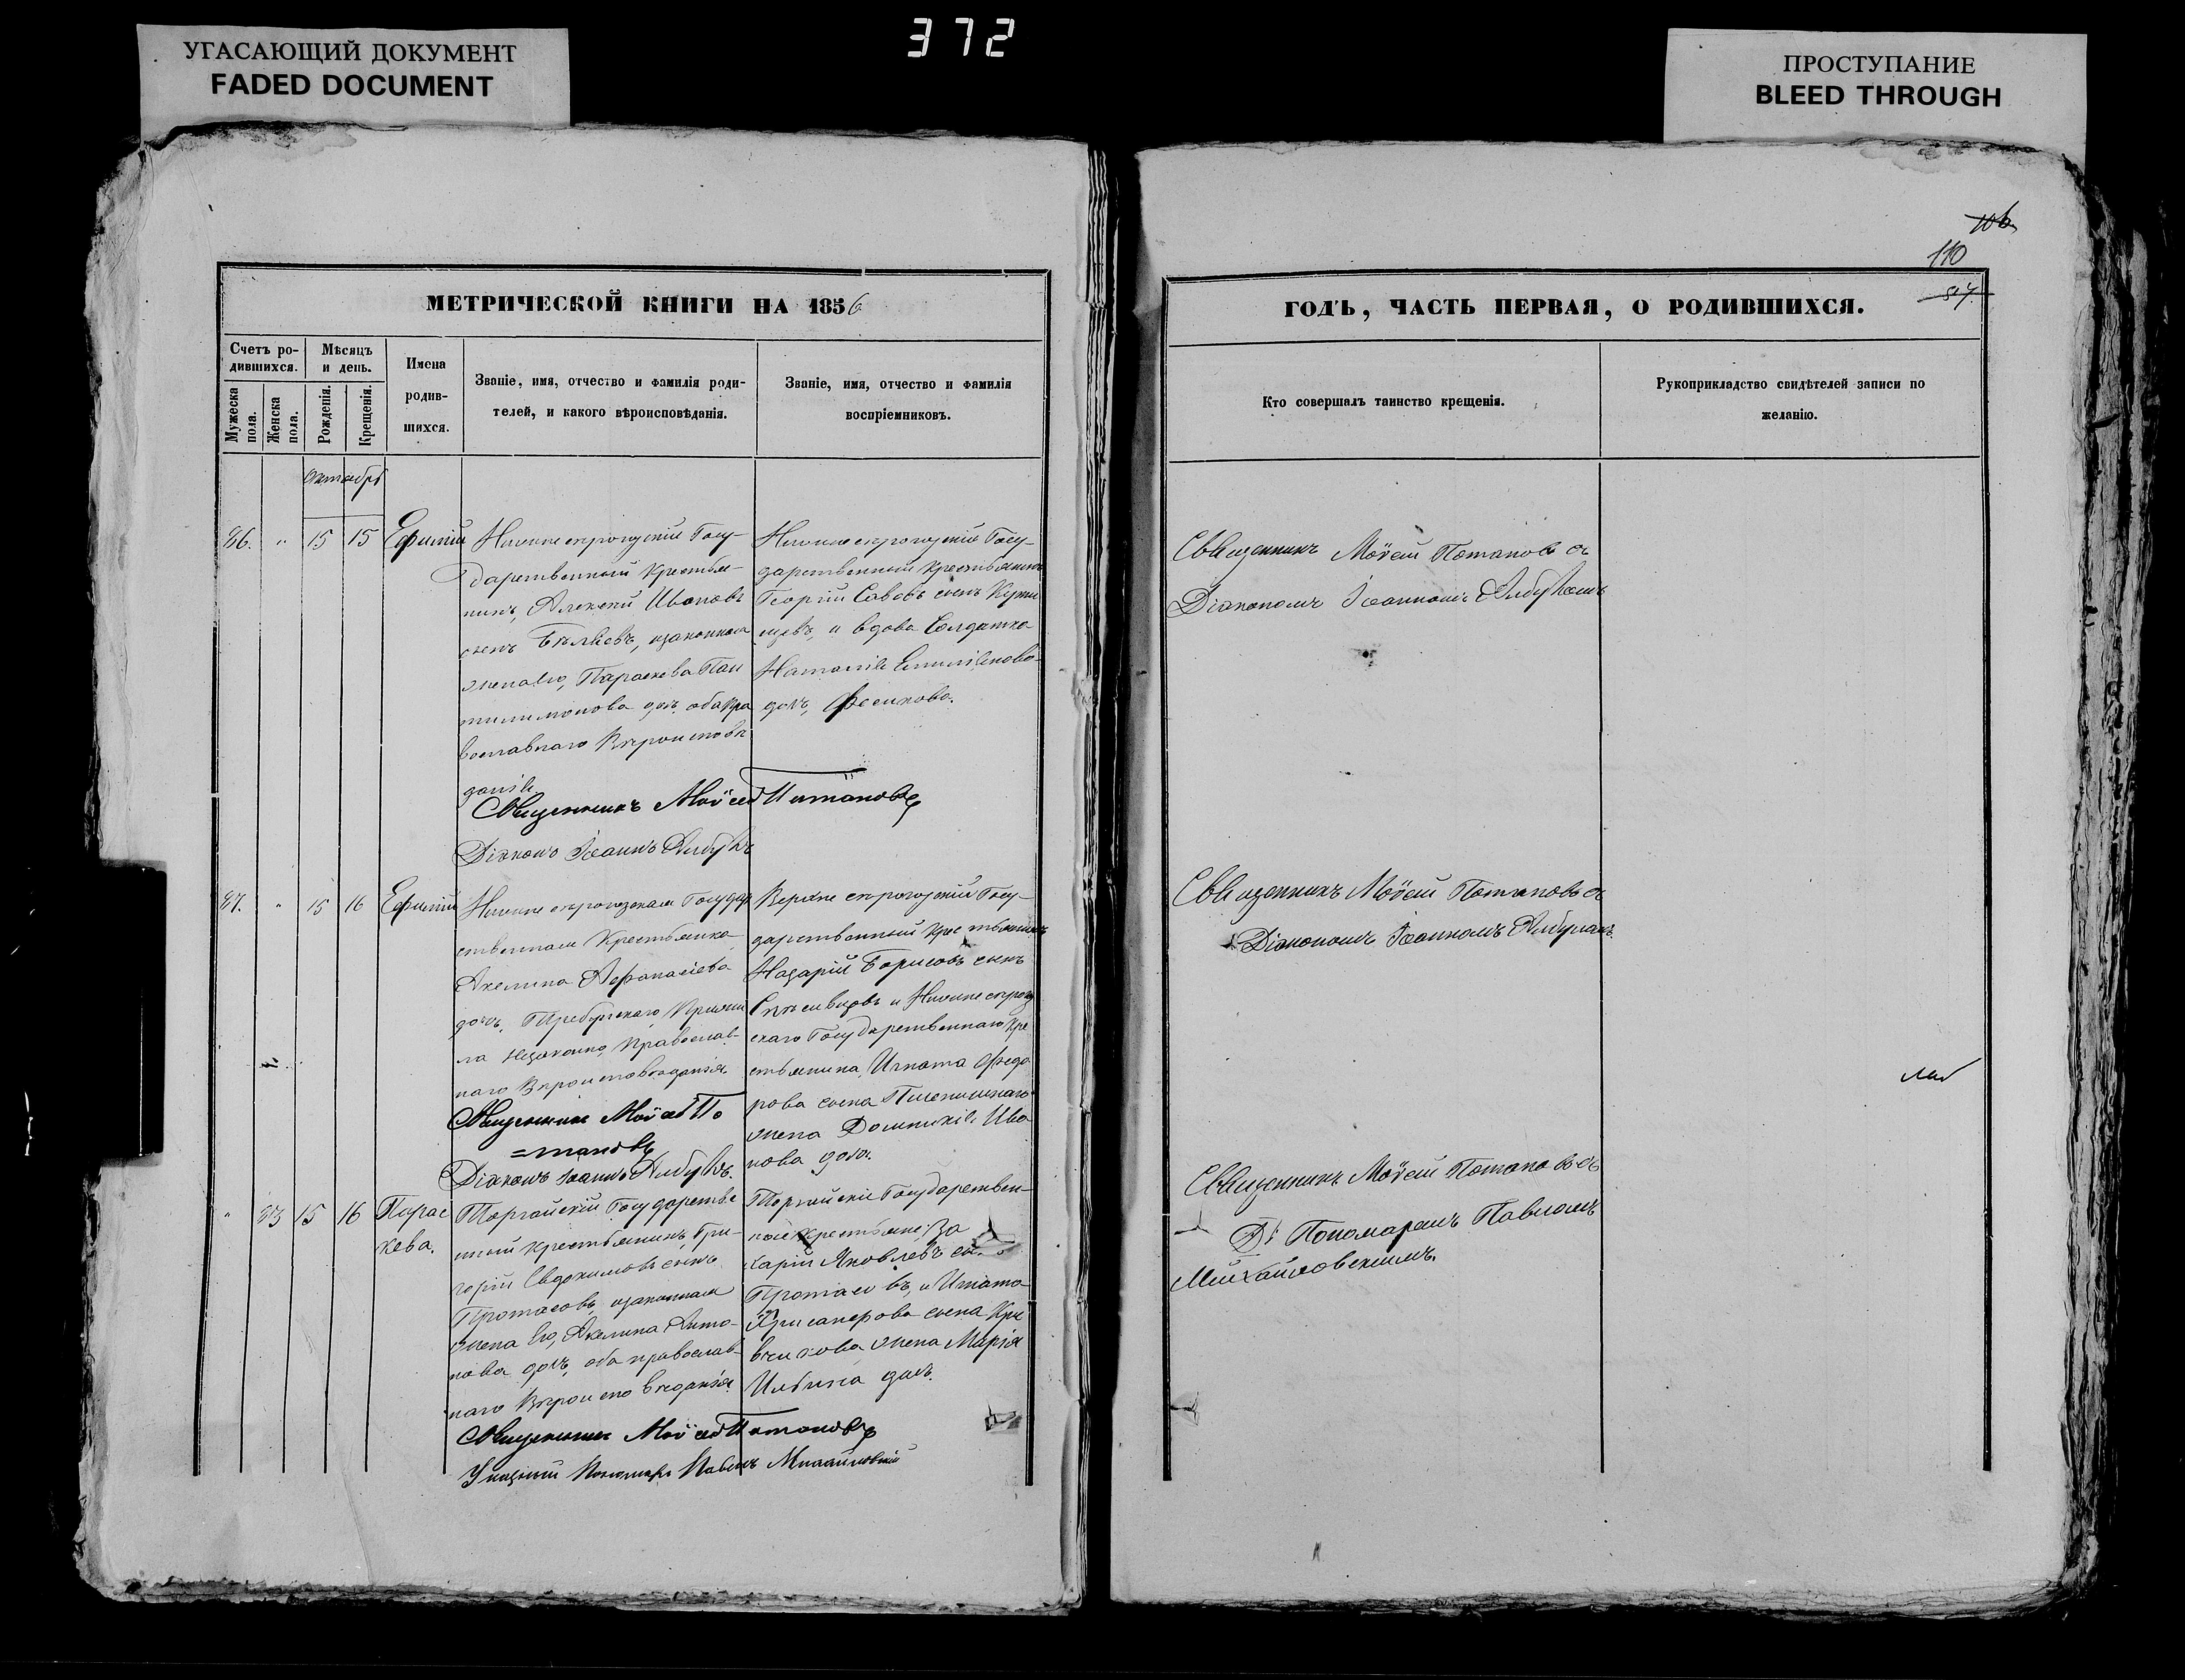 372
УГАСАЮЩИЙ ДОКУМЕНТ
FADED DOCUMENT
ПРОСТУПАНИЕ
BLEED THROUGH
106
110
МЕТРИЧЕСКОЙ КНИГИ НА 1856
Счетъ ро-
дившихся.
Мѣсяцъ
и день.
Мужеска
пола.
Женска
пола.
Рожденія.
Крещенія.
Имена
родив-
шихся.
Званіе, имя, отчество и фамилія роди-
телей, и какого вѣроисповѣданія.
Званіе, имя, отчество и фамилія
воспріемниковъ.
Октябрь
86. " 15 15 Ефимій
Госу-
дарственный Крестья-
нинъ, Алексей Ивановъ
сынъ Бѣляевъ, и законная
жена его, Параскева Пан
тилимонова доч. оба Пра
вославнаго Вѣроисповѣ
данія.
Священникъ Мойсей Потаповъ
Діаконъ Іоаннъ
Госу-
дарственный Крестьянинъ
Георгій Савовъ сынъ
и вдова Солдатка
Наталія
дочь,
87. " 15 16 Ефимій
Государ
ственная Крестьянка
Акелина Афанасіева
дочь,
незаконно Православ-
наго Вѣроисповѣданія.
Священникъ Мойсей По
=таповъ
Діаконъ Іоаннъ
Госу-
дарственный Крестьянинъ
Назарій Борисовъ сынъ
скаго Государственнаго Кре
стьянина, Игната Федо
рова сына
жена Домникія Ива
нова дочь.
" 83 15 16 Парас
кева.
Государстве
нный Крестьянинъ, Гри-
горій Евдокимовъ сынъ
Протасовъ, и законная
жена его, Акелина Анто-
нова дочь, оба православ-
наго Вѣроисповеданія.
Священникъ Мойсей Потаповъ
Пономарь Павелъ Михайловскій
Государствен-
ные Крестьяне: За
харій Яковлевъ сы.
Протасовъ, и Игната
сына Кри
жена Марія
Ильина дочь.
ГОДЪ, ЧАСТЬ ПЕРВАЯ, О РОДИВШИХСЯ.
Кто совершалъ таинство крещенія.
Рукоприкладство свидѣтелей записи по
желанію.
Священникъ Мойсей Потаповъ съ
Діакономъ Іоанномъ
Священникъ Мойсей Потаповъ съ
Діакономъ Іоанномъ
Священникъ Мойсей Потаповъ съ
Пономаремъ Павломъ
Михайловскимъ.